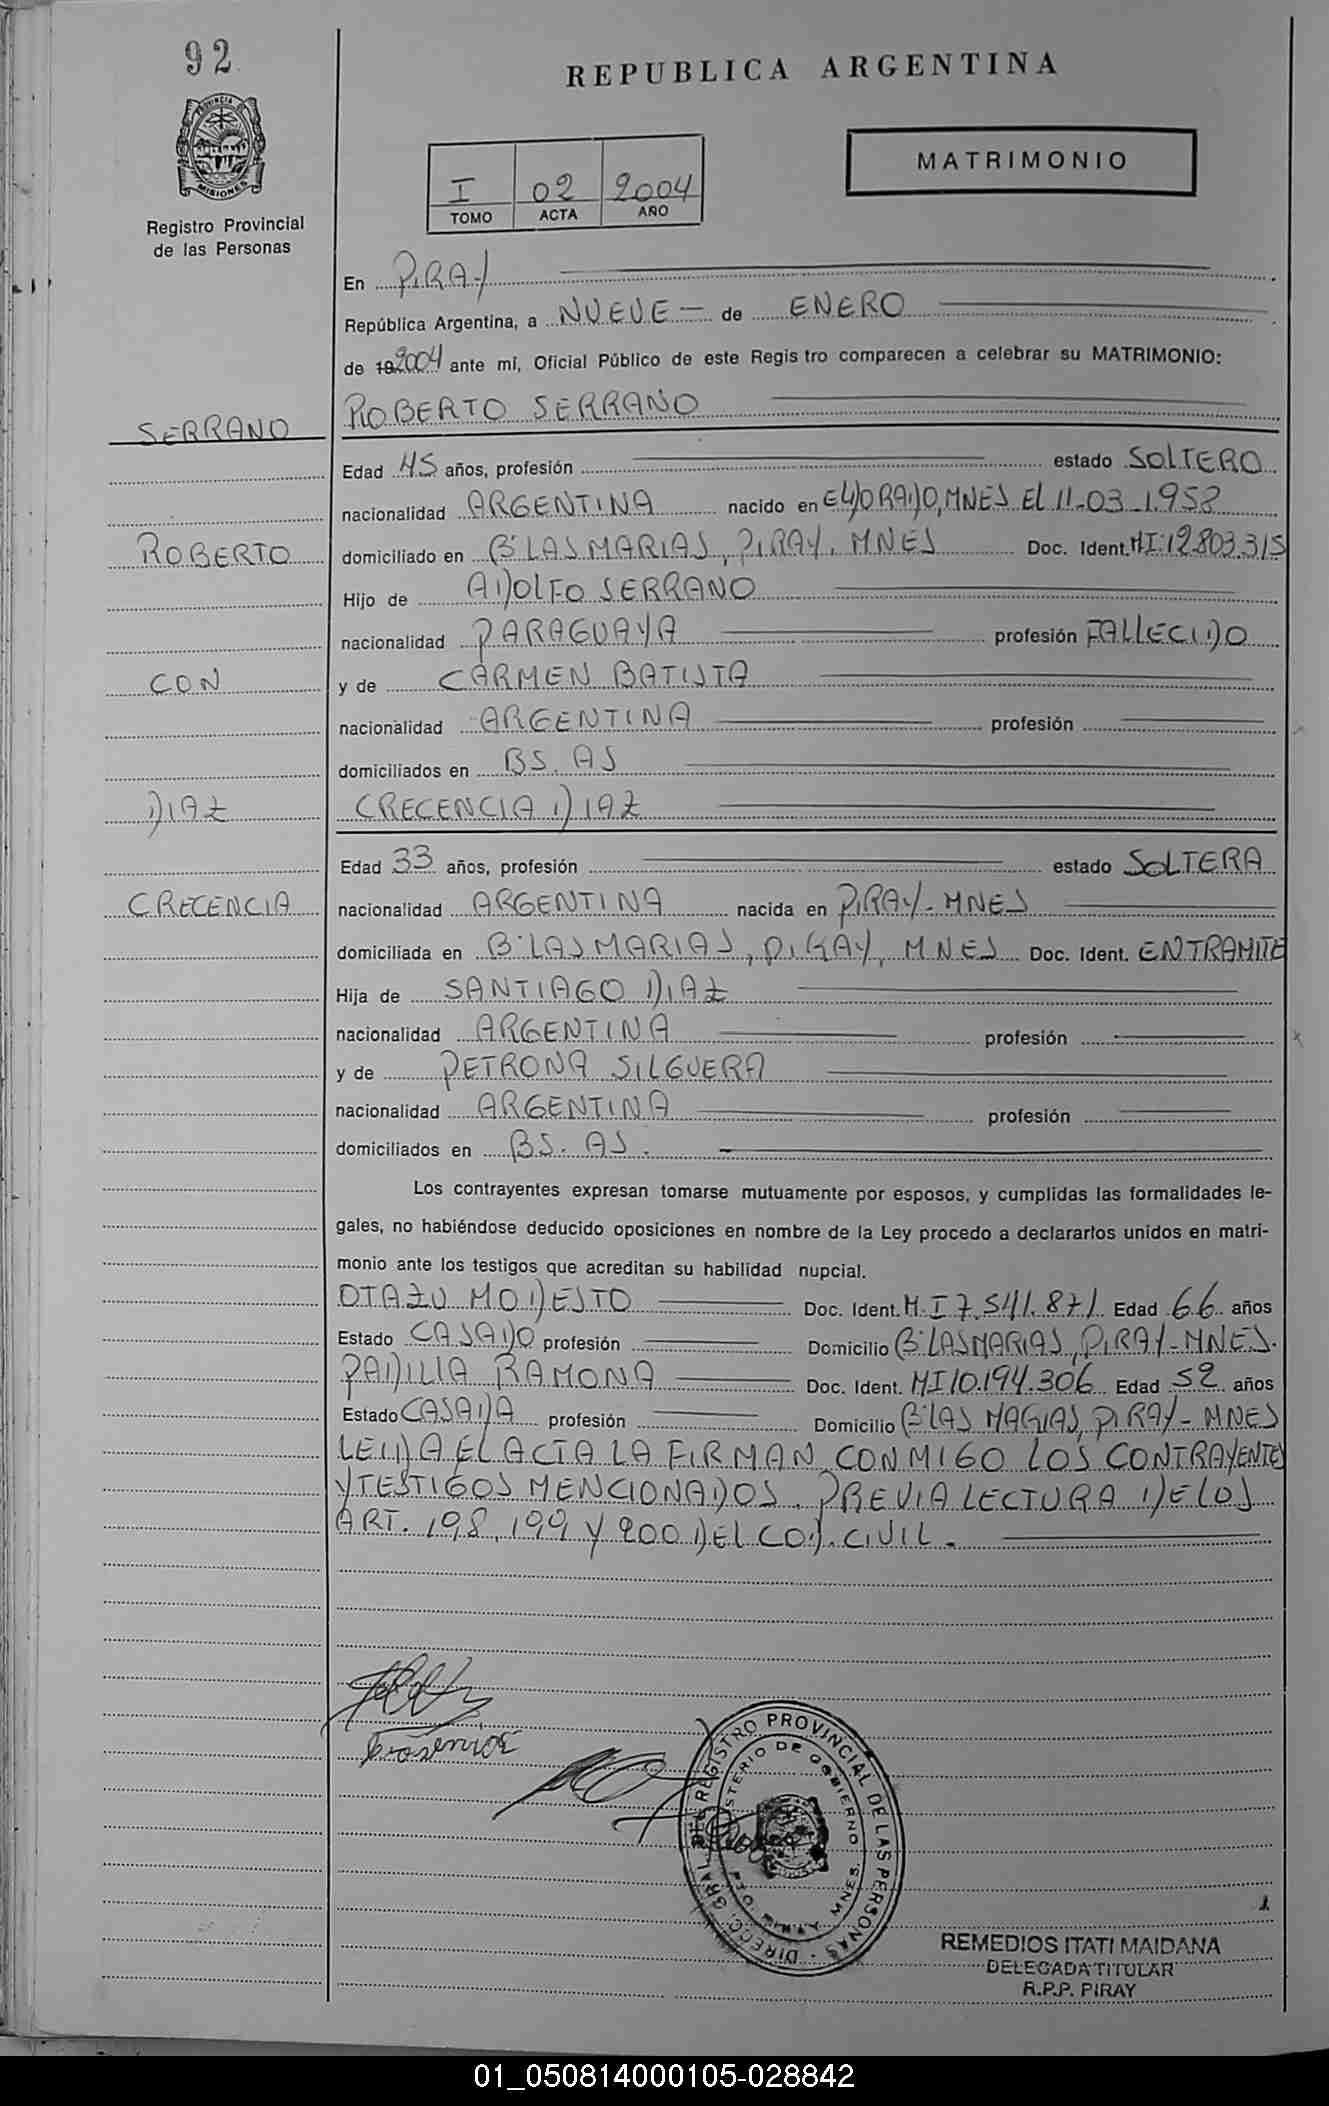 92
REPUBLICA ARGENTINA
PROVINCIA DE MISIONES
Registro Provincial
de las Personas
I 02 2004
TOMO ACTA AÑO
MATRIMONIO
En PIRAY
República Argentina, a NUEVE de ENERO
de 192004 ante mi, Oficial Público de este Regis tro comparecen a celebrar su MATRIMONIO:
SERRANO
ROBERTO SERRANO
Edad 45 años, profesión estado SOLTERO
nacionalidad ARGENTINA nacido en ELDORADO, MNES EL 11-03-1.958
ROBERTO
domiciliado en Bº LAS MARIAS, PIRAY, MNES Doc. Ident. MI: 12.803.315
Hijo de ADOLFO SERRANO
nacionalidad PARAGUAYA profesión FALLECIDO
CON
y de CARMEN BATISTA
nacionalidad ARGENTINA profesión
domiciliados en BS. AS
DIAZ
CRECENCIA DIAZ
Edad 33 años, profesión estado SOLTERA
CRECENCIA
nacionalidad ARGENTINA nacida en PIRAY-MNES
domiciliada en Bº LAS MARIAS, PIRAY, MNES Doc. Ident. EN TRAMITE
Hija de SANTIAGO DIAZ
nacionalidad ARGENTINA profesión
y de PETRONA SILGUERA
nacionalidad ARGENTINA profesión
domiciliados en BS. AS.
Los contrayentes expresan tomarse mutuamente por esposos, y cumplidas las formalidades le-
gales, no habiéndose deducido oposiciones en nombre de la Ley procedo a declararlos unidos en matri-
monio ante los testigos que acreditan su habilidad nupcial.
OTAZU MODESTO Doc. Ident. M.I 7.541.871 Edad 66 años
Estado CASADO profesión Domicilio Bº LAS MARIAS, PIRAY-MNES.
PADILLA RAMONA Doc. Ident. MI 10.194.306 Edad 52 años
Estado CASADA profesión Domicilio Bº LAS MARIAS, PIRAY-MNES
LEIDA EL ACTA LA FIRMAN CONMIGO LOS CONTRAYENTES
Y TESTIGOS MENCIONADOS. PREVIA LECTURA DE LOS
ART. 198, 199 Y 200 DEL COD. CIVIL.
DIRECC. GRAL. DEL REGISTRO PROVINCIAL DE LAS PERSONAS
MINISTERIO DE GOBIERNO
MNES.
REMEDIOS ITATI MAIDANA
DELEGADA TITULAR
R.P.P. PIRAY
01_050814000105-028842